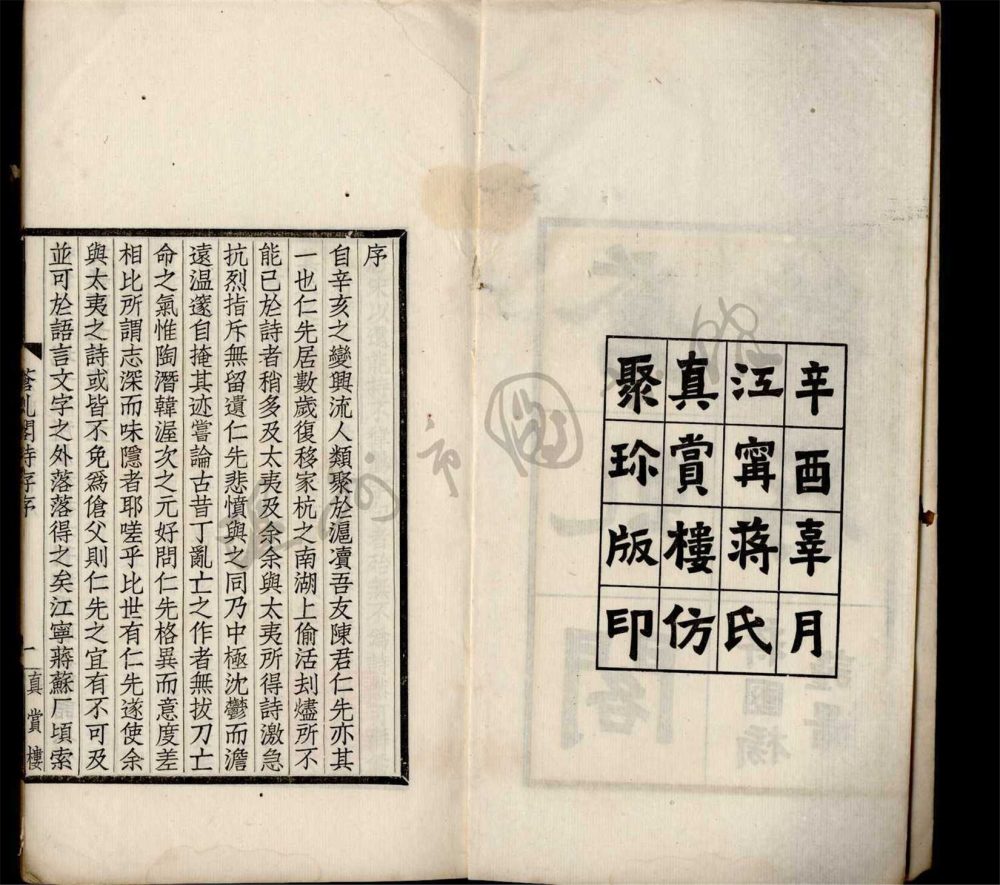 辛酉辜月
江寗蒋氏
真賞樓仿
聚珍版印
序
自辛亥之變興流人類聚於滬瀆吾友陳君仁先亦其
一也仁先居數歲復移家杭之南湖上偷活刦燼所不
能已於詩者稍多及太夷及余余與太夷所得詩激急
抗烈指斥無留遺仁先悲憤與之同乃中極沈鬱而澹
遠温邃自掩其迹嘗論古昔丁亂亡之作者無拔刀亡
命之氣惟陶潛韓渥次之元好問仁先格異而意度差
相比所謂志深而味隱者耶嗟乎比世有仁先遂使余
與太夷之詩或皆不免為傖父則仁先之宜有不可及
並可於語言文字之外落落得之矣江寧蔣蘇厂頃索
蒼虬閣詩存序
一
真賞樓